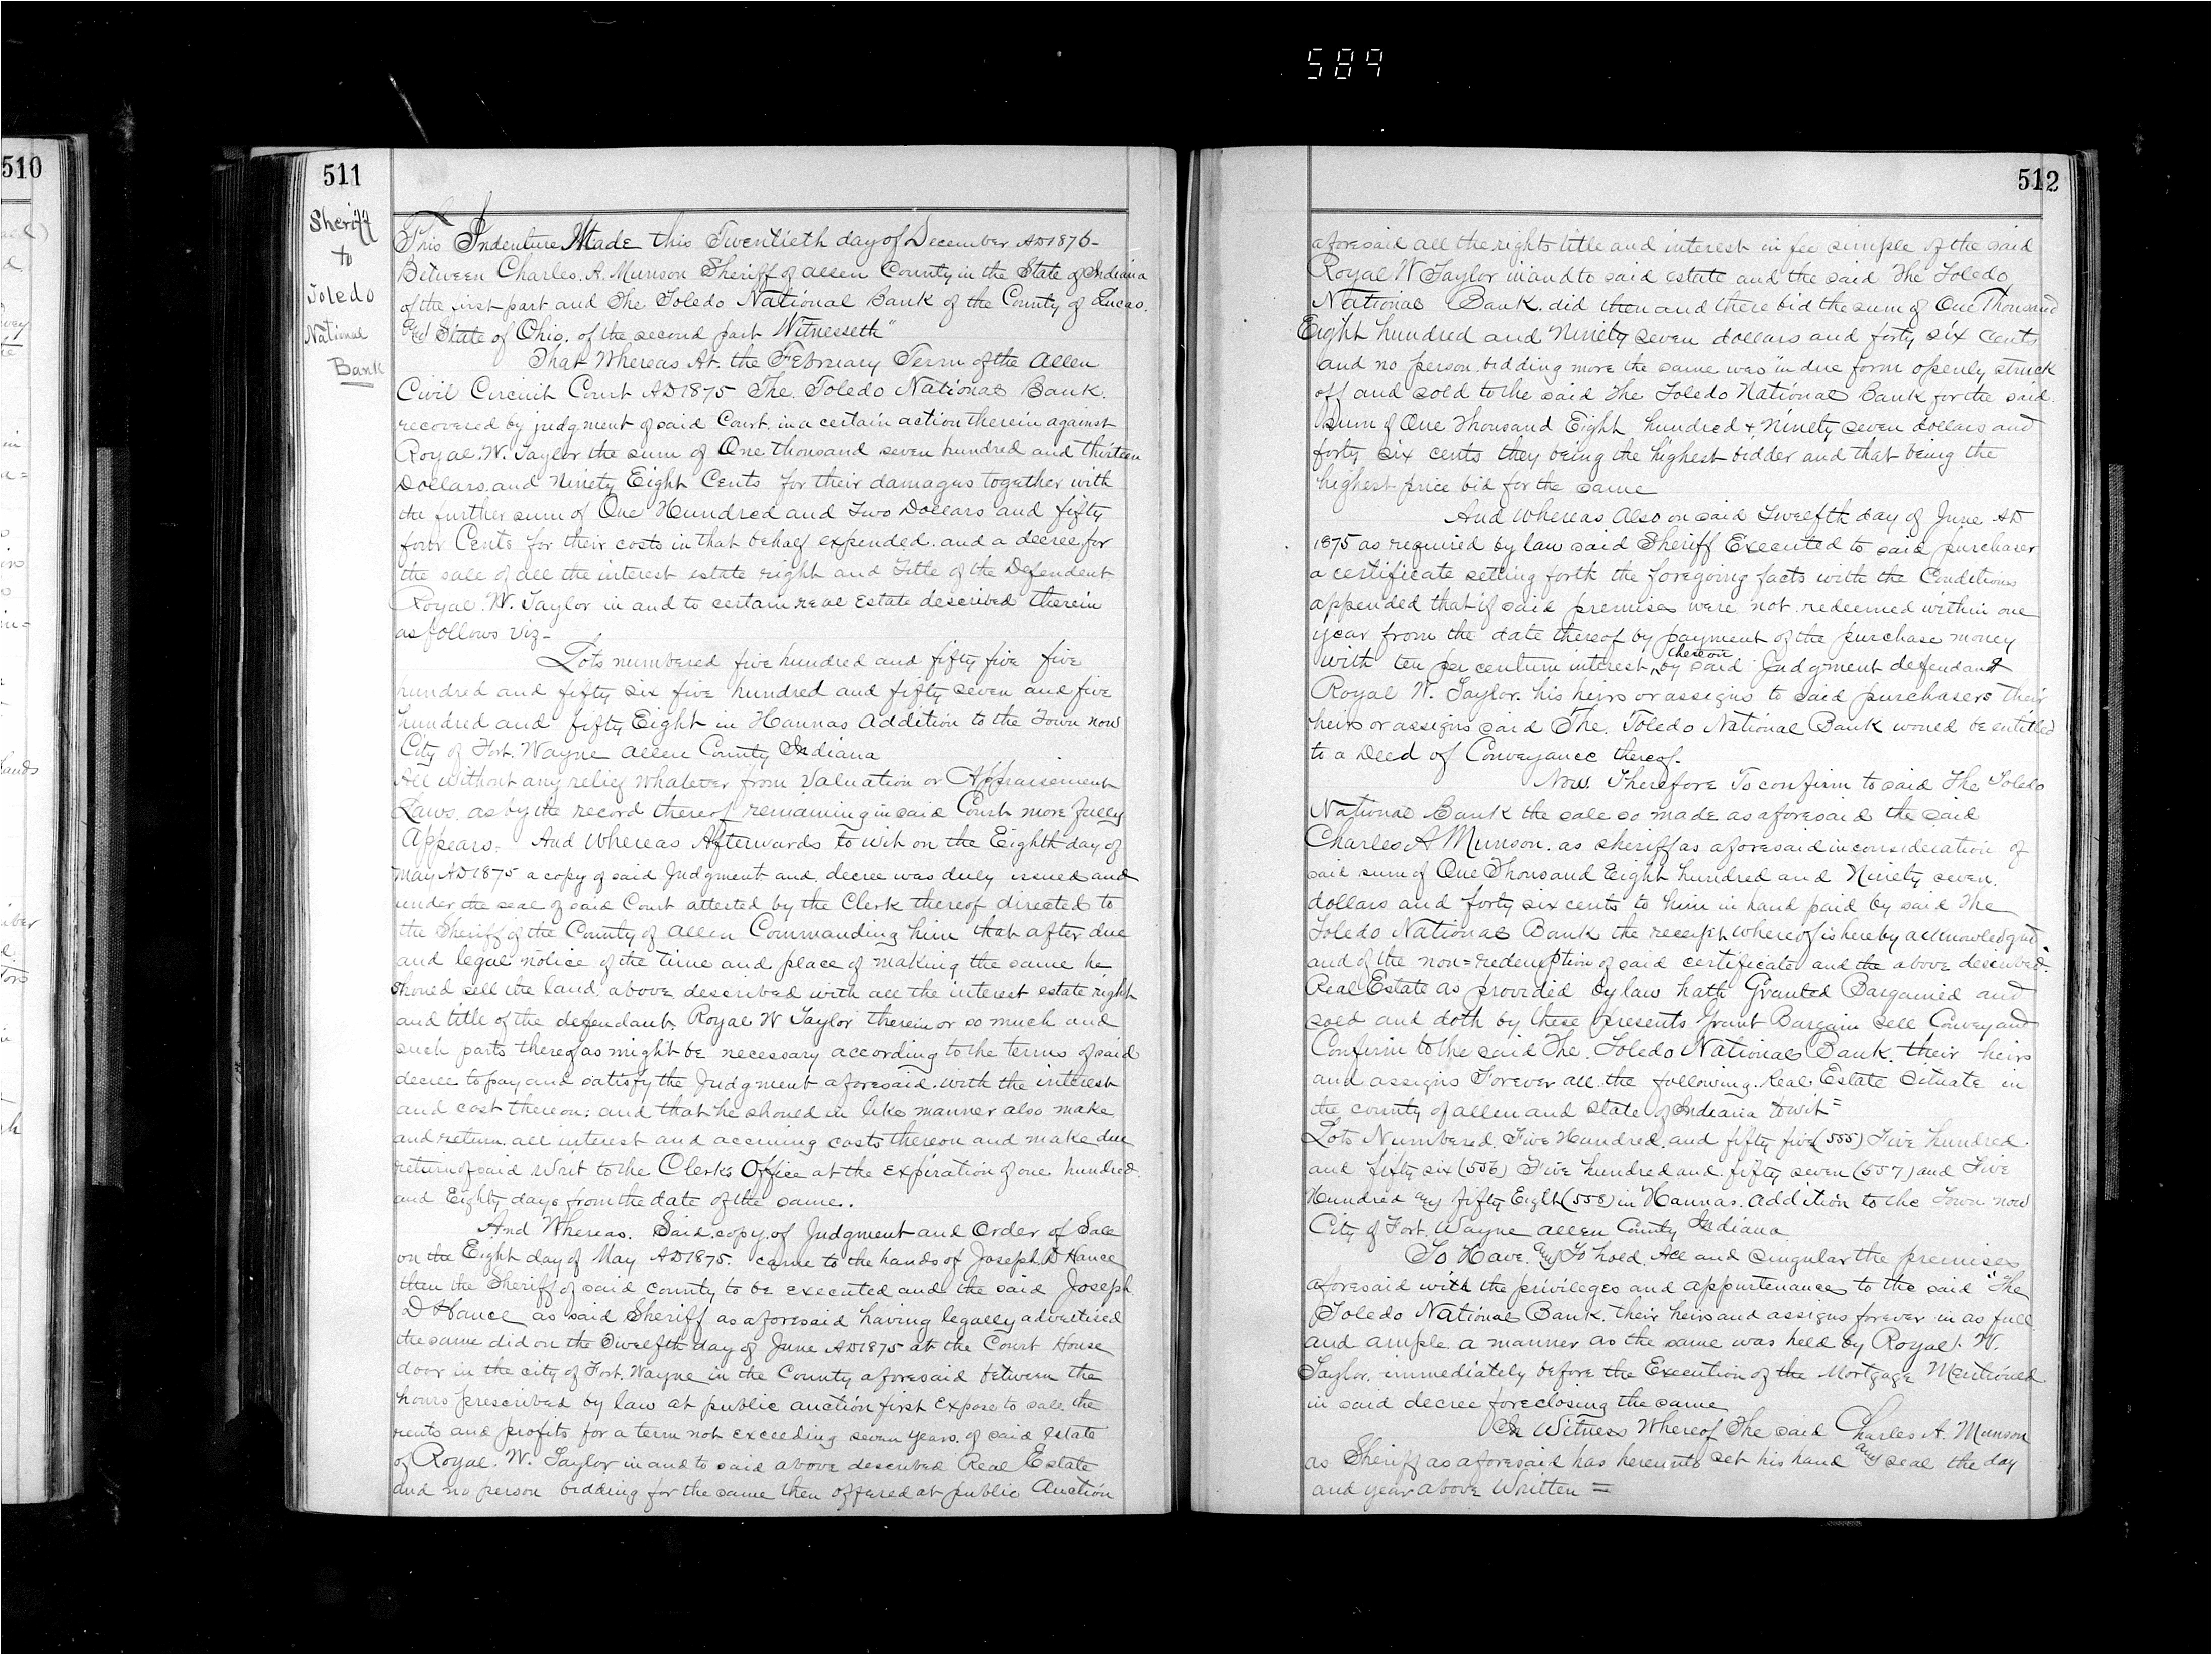 589
510
511
Sheriff
to
Toledo
National
Bank
This Indenture Made this Twentieth day of December AD 1876-
Between Charles. A. Munson Sheriff of Allen County in the State of Indiana
of the first part and The Toledo National Bank of the County of Lucas.
and State of Ohio. of the second part Witnesseth"
That Whereas At. the February Term of the Allen
Civil Circuit Court AD 1875 The. Toledo National Bank.
recovered by judgment of said Court. in a certain action therein against
Royal. W. Taylor the sum of One thousand seven hundred and thirteen
Dollars. and Ninety Eight Cents for their damages together with
the further sum of One Hundred and Two Dollars and fifty
four Cents for their costs in that behalf expended. and a decree for
the sale of all the interest estate right and Title of the Defendent
Royal. W. Taylor in and to certain real Estate described therein
as follows viz-
Lots numbered five hundred and fifty five five
hundred and fifty six five hundred and fifty seven and five
hundred and fifty Eight in Hannas Addition to the Town now
City of Fort. Wayne Allen County Indiana
All without any relief whatever from Valuation or Appraisement
Laws. as by the record thereof remaining in said Court more fully
Appears. And Whereas Afterwards to wit on the Eighth day of
May AD 1875 a copy of said Judgment and. decree was duly issued and
under the seal of said Court attested by the Clerk thereof directed to
the Sheriff of the County of Allen Commanding him that after due
and legal notice of the time and place of making the same he
shoued sell the land. above described with all the interest estate right
and title of the defendant. Royal W Taylor therein or so much and
such parts thereof as might be necessary according to the terms of said
decree to pay and satisfy the Judgment aforesaid. with the interest
and cost thereon: and that he shoued in like manner also make
and return. all interest and accruing costs thereon and make due
return of said Writ to the Clerks Office at the expiration of one hundred
and Eighty days from the date of the same.
And Whereas. Said. copy. of Judgment and Order of Sale
on the Eight day of May AD 1875. came to the hands of Joseph. D Hance
then the Sheriff of said county to be executed and the said Joseph.
D Hance as said Sheriff as aforesaid having legally advertised
the same did on the Twelfth day of June AD 1875 at the Court House
door in the city of Fort. Wayne in the County aforesaid between the
hours prescribed by law at public auction first Expose to sale the
rents and profits for a term not exceeding seven years. of said estate
of Royal. W. Taylor in and to said above described Real Estate
and no person bidding for the same then offered at public Auction
512
aforesaid all the rights title and interest in fee simple of the said
Royal W Taylor in and to said estate and the said The Toledo
National Bank. did then and there bid the sum of One Thousand
Eight hundred and Ninety seven dollars and forty six cents
and no person. bidding more the same was in due form openly struck
off and sold to the said The Toledo National Bank for the said.
sum of One Thousand Eight hundred & Ninety seven dollars and
forty six cents they being the highest bidder and that being the
highest price bid for the same
And Whereas Also on said Twelfth day of June AD
1875 as required by law said Sheriff Executed to said purchaser
a certificate setting forth the foregoing facts with the Conditions
appended that if said premises were not. redeemed within one
year from the date thereof by payment of the purchase money
with ten per centum interest thereon by said Judgment defendant
Royal W. Taylor. his heirs or assigns to said purchasers their
heirs or assigns said The. Toledo National Bank would be entitled
to a Deed of Conveyance thereof.
Now. Therefore To confirm to said The Toledo
National Bank the sale so made as aforesaid the said
Charles A Munson. as sheriff as aforesaid in consideration of
said sum of One Thousand Eight hundred and Ninety seven.
dollars and forty six cents to him in hand paid by said The
Toledo National Bank the receipt whereof is hereby acknowledged
and of the non=redemption of said certificate and the above described.
Real Estate as provided by law hath Granted Bargained and
sold and doth by these presents Grant Bargain Sell Convey and
Confirm to the said The. Toledo National Bank. their heirs
and assigns Forever all. the following. Real Estate Situate in
the county of Allen and State of Indiana to wit=
Lots Numbered. Five Hundred. and fifty five (555) Five hundred.
and fifty six (556) Five hundred and. fifty seven (557) and Five
Hundred and fifty Eight (558) in Hannas. Addition to the Town now
City of Fort. Wayne Allen County Indiana
To Have. and To hold. All and Singular the premises
aforesaid with the privileges and appurtenances to the said "The
Toledo National Bank. their heirs and assigns forever in as full.
and ample a manner as the same was held by Royal. W.
Taylor. immediately before the Execution of the Mortgage Mentioned
in said decree foreclosing the same
In Witness Whereof The said Charles A. Munson
as Sheriff as aforesaid has hereunto set his hand and seal the day
and year above Written =